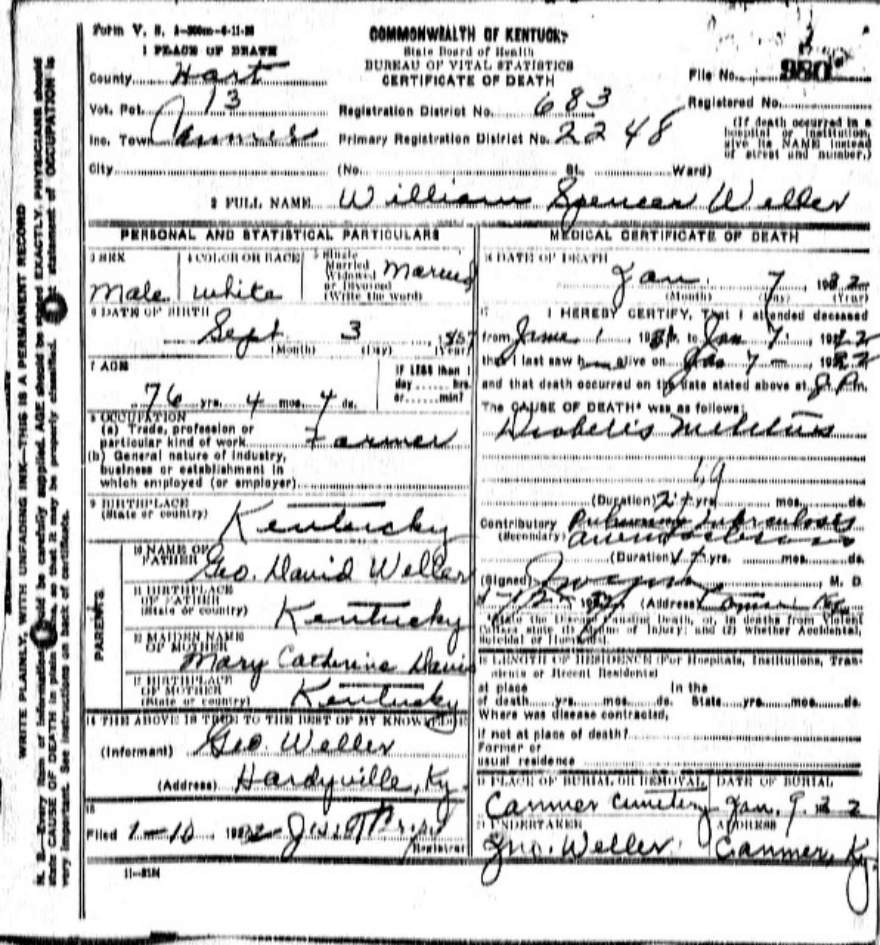 Form V. S.
COMMONWEALTH OF KENTUCKY
State Board of Health
BUREAU OF VITAL STATISTICS
CERTIFICATE OF DEATH
1 PLACE OF DEATH
County Hart
File No. 980
Vot. Pct. 13
Registration District No. 683
Registered No.
Inc. Town Canmer
Primary Registration District No. 2248
(If death occurred in a
hospital or institution,
give its NAME instead
of street and number.)
City
(No. St. Ward)
2 FULL NAME William Spencer Weller
PERSONAL AND STATISTICAL PARTICULARS
3 SEX
Male
4 COLOR OR RACE
white
5 Single
Married
Widowed
or Divorced
(Write the word)
Married
6 DATE OF BIRTH
Sept 3
(Month) (Day) (Year)
7 AGE
76 yrs. 4 mos. 4 ds.
If LESS than 1
day hrs.
or min?
8 OCCUPATION
(a) Trade, profession or
particular kind of work Farmer
(b) General nature of industry,
business or establishment in
which employed (or employer)
9 BIRTHPLACE
(State or country) Kentucky
PARENTS
10 NAME OF
FATHER Geo. David Weller
11 BIRTHPLACE
OF FATHER
(State or country) Kentucky
12 MAIDEN NAME
OF MOTHER
Mary Catherine Davis
13 BIRTHPLACE
OF MOTHER
(State or country) Kentucky
14 THE ABOVE IS TRUE TO THE BEST OF MY KNOWLEDGE
(Informant) Geo. Weller
(Address) Hardyville, Ky.
15
Filed 1-10
Registrar
11-21M
MEDICAL CERTIFICATE OF DEATH
16 DATE OF DEATH
Jan. 7 1932
(Month) (Day) (Year)
17 I HEREBY CERTIFY, That I attended deceased
from 1 to Jan 7
that I last saw h alive on Jan 7
and that death occurred on the date stated above at P.m.
The CAUSE OF DEATH* was as follows:
Diabetis Mellitus
(Duration) 2+ yrs mos. ds.
Contributory Pulmonary tuberculosis
(Secondary)
(Duration) yrs. mos. ds.
(Signed) M. D.
(Address) Ky
*State the Disease Causing Death, or, in deaths from Violent
Causes state (1) Means of Injury; and (2) whether Accidental,
Suicidal or Homicidal.
18 LENGTH OF RESIDENCE (For Hospitals, Institutions, Tran-
sients or Recent Residents)
at place In the
of death yrs. mos. ds. State yrs. mos. ds.
Where was disease contracted,
if not at place of death?
Former or
usual residence
19 PLACE OF BURIAL OR REMOVAL
Canmer Cemetery
DATE OF BURIAL
Jan. 9. 32
20 UNDERTAKER
Jno. Weller
ADDRESS
Canmer, Ky.
WRITE PLAINLY, WITH UNFADING INK—THIS IS A PERMANENT RECORD
N. B.—Every item of information should be carefully supplied. AGE should be stated EXACTLY. PHYSICIANS should
state CAUSE OF DEATH in plain terms, so that it may be properly classified. Exact statement of OCCUPATION is
very important. See instructions on back of certificate.